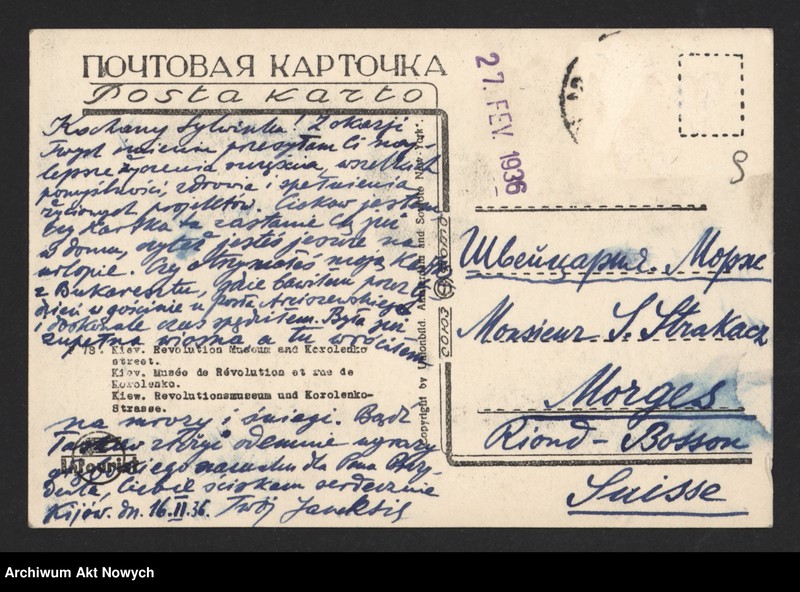 ПОЧТОВАЯ КАРТОЧКА
Posta karto
27. FEV. 1936
Kochany Sylwinku! Z okazji
Twych imienin przesyłam Ci naj-
lepsze życzenia szczęścia, wszelkich
pomyślności, zdrowia i spełnienia
życiowych projektów. Ciekaw jestem
czy kartka ta zastanie Cię już
w domu, czy też jesteś jeszcze na
urlopie. Czy otrzymałeś moją kartę
z Bukaresztu, gdzie bawiłem przez
dzień w gościnie u posła Arciszewskiego
i doskonale czas spędziłem. Była już
zupełna wiosna a tu wróciłem
79. Kiev. Revolution Museum and Korolenko
street.
Kiev. Musée de Révolution et rue de
Korolenko.
Kiew. Revolutionsmuseum und Korolenko-
Strasse.
na mrozy i śniegi. Bądź
łaskaw złożyć odemnie wyrazy
szacunku dla Pana Prezy-
denta, Ciebie ściskam serdecznie
Kijów. dn. 16.II.36. Twój
Intourist
Copyright by Unionbild. Amsterdam and Sojufoto New-York
СОЮЗ ФОТО
S
Швейцария. Морж
Monsieur S. Strakacz
Morges
Riond-Bosson
Suisse
Archiwum Akt Nowych